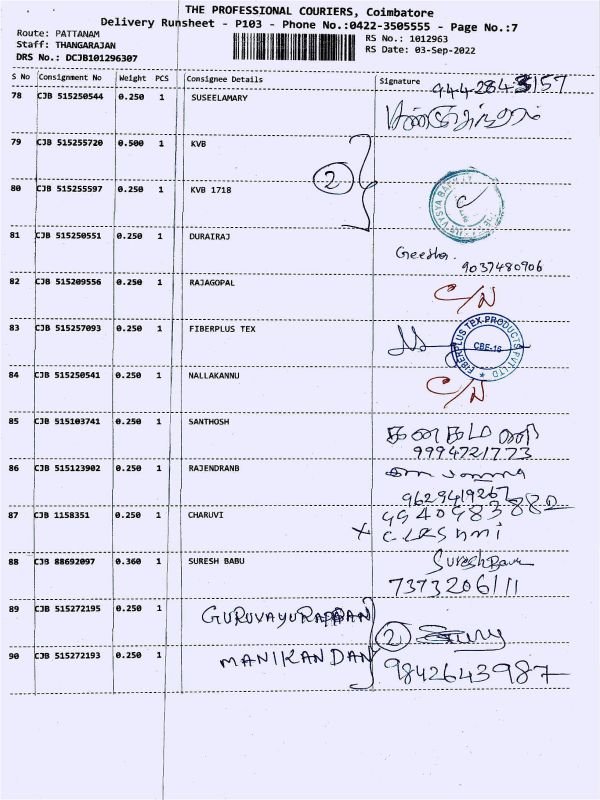 THE PROFESSIONAL COURIERS, Coimbatore
Delivery Runsheet - P103 - Phone No.:0422-3505555 - Page No.:7
Route: PATTANAM
Staff: THANGARAJAN
DRS No.: DCJB101296307
RS No.: 1012963
RS Date: 03-Sep-2022
S No Consignment No Weight PCS Consignee Details Signature
78 CJB 515250544 0.250 1 SUSEELAMARY
79 CJB 515255720 0.500 1 KVB
2
80 CJB 515255597 0.250 1 KVB 1718
81 CJB 515250551 0.250 1 DURAIRAJ
Geetha
9037480906
82 CJB 515209556 0.250 1 RAJAGOPAL C/N
83 CJB 515257093 0.250 1 FIBERPLUS TEX
FIBERPLUS TEX PRODUCTS PVT LTD
CBE-16
84 CJB 515250541 0.250 1 NALLAKANNU C/N
85 CJB 515103741 0.250 1 SANTHOSH
9994721773
86 CJB 515123902 0.250 1 RAJENDRANB
9629419267
87 CJB 1158351 0.250 1 CHARUVI
88 CJB 88692097 0.360 1 SURESH BABU
7373206111
89 CJB 515272195 0.250 1 GURUVAYURAPPAN
2
90 CJB 515272193 0.250 1 MANIKANDAN
9842643987